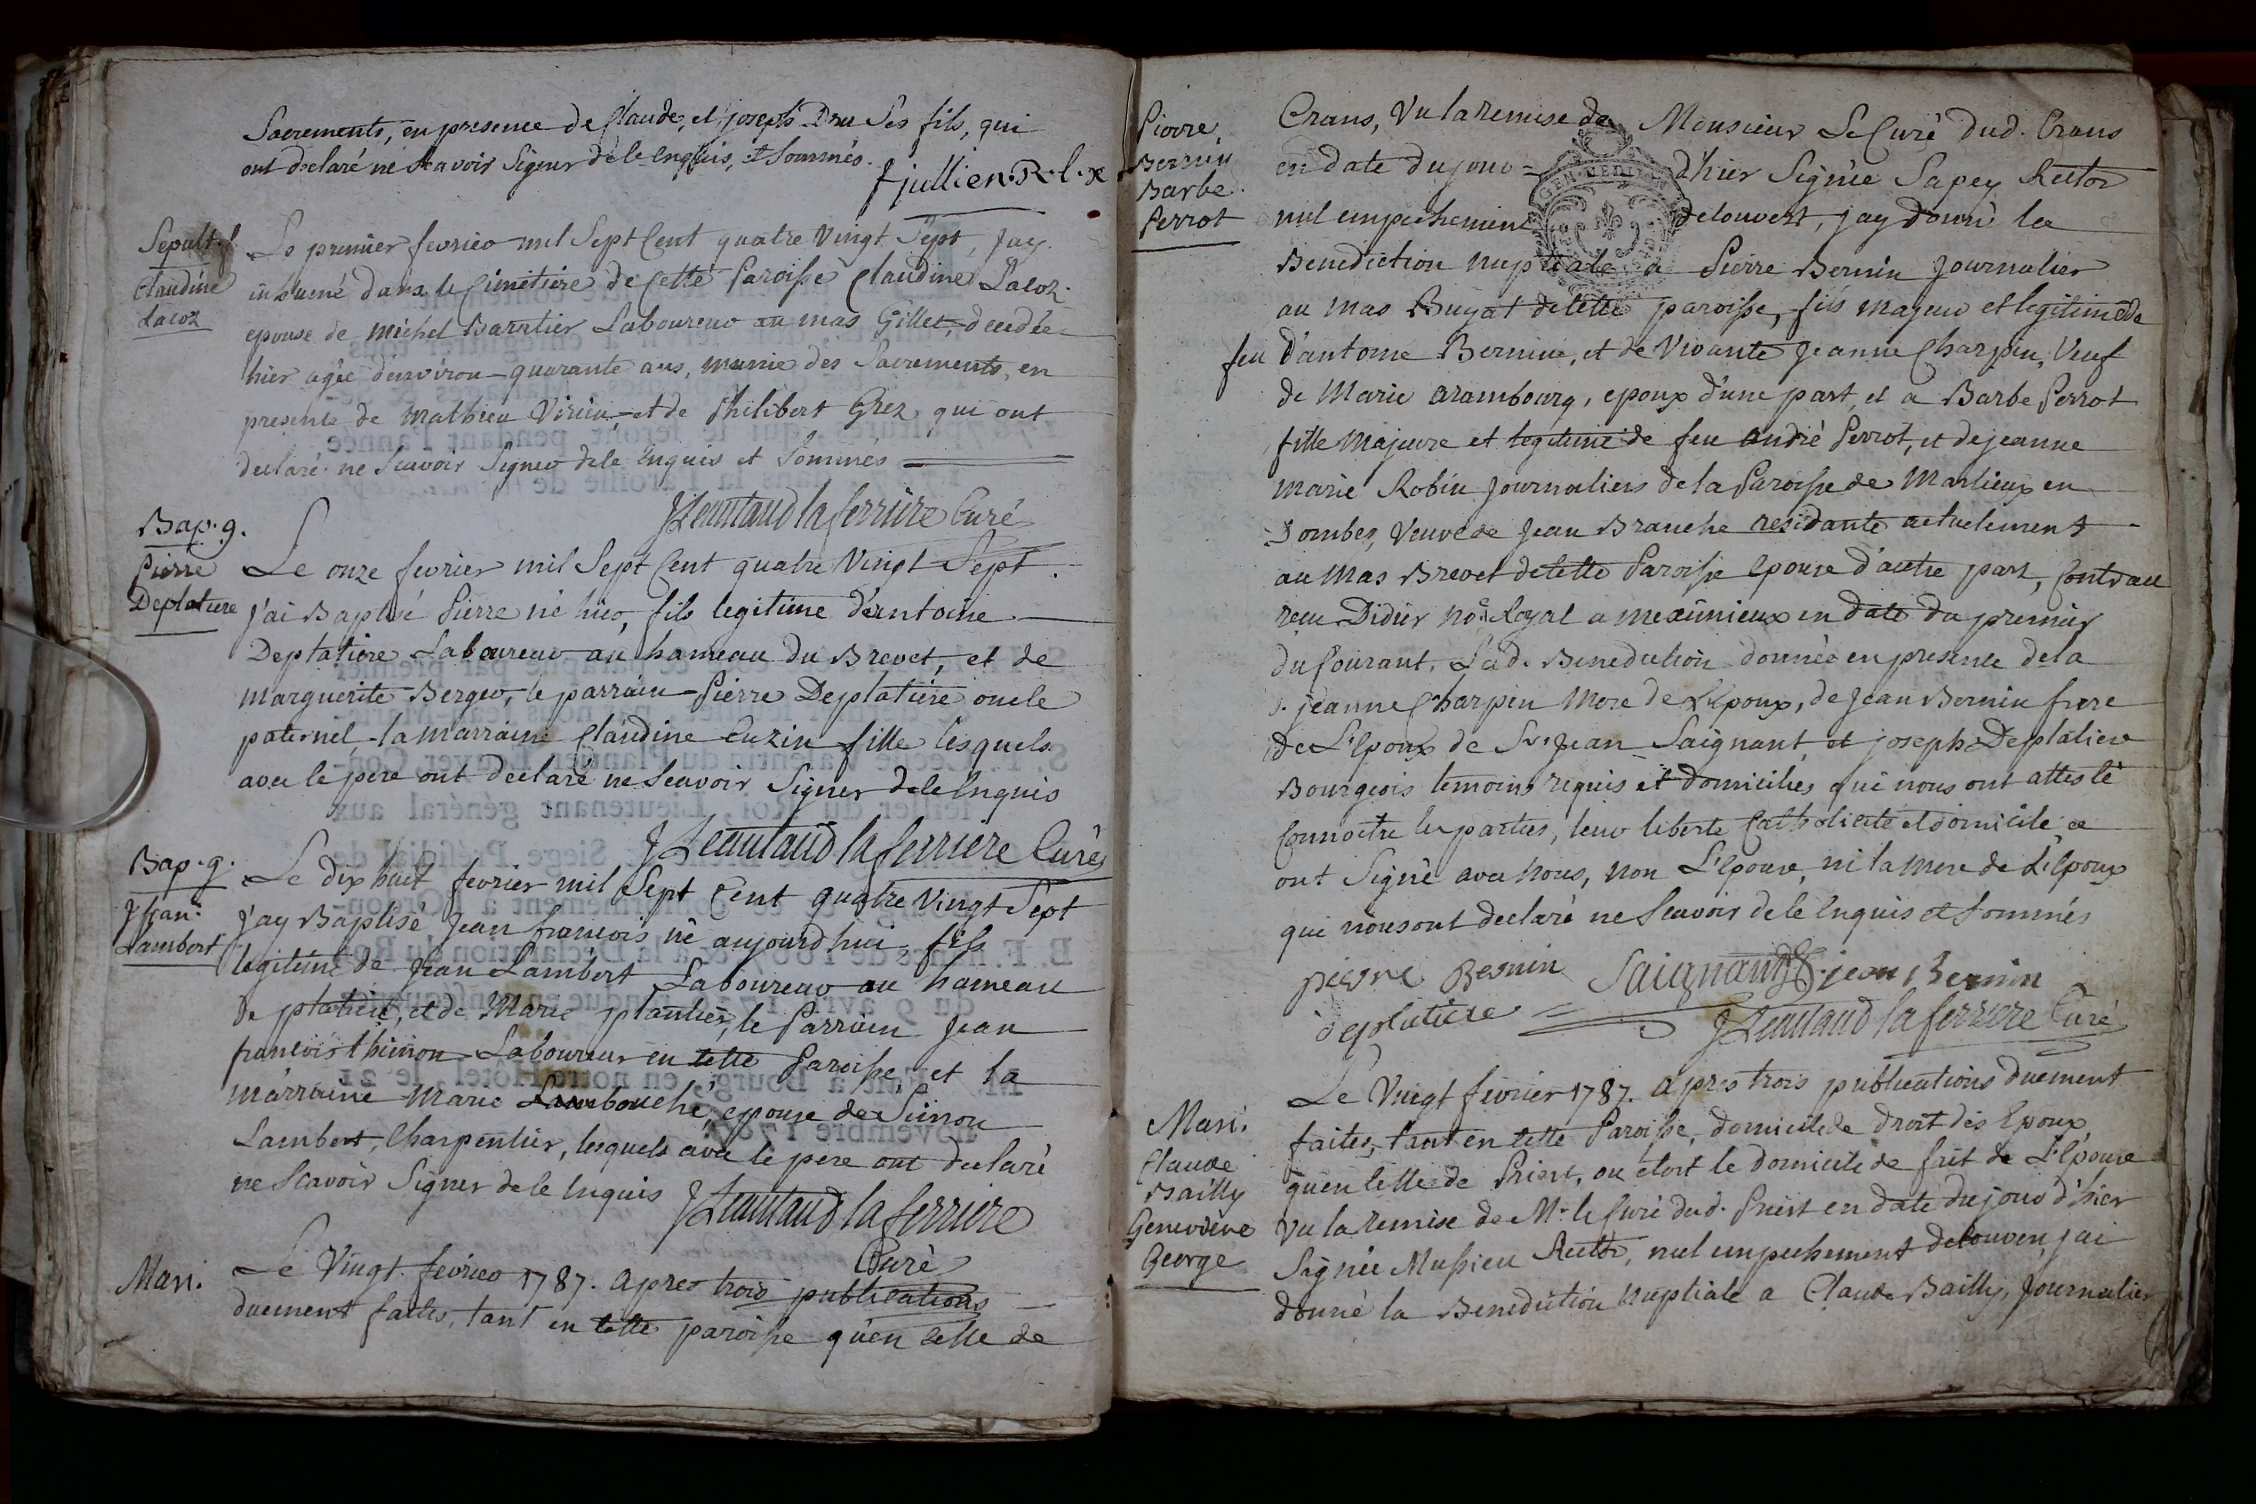 Sacrements, en presence de Claude, et joseph Dru Ses fils, qui
ont declaré ne Scavoir Signer de le enquis, et Sommés.
fjullien. R. l. x
Sepult. f
Claudine
Lacoz
Le premier fevrier mil Sept Cent quatre Vingt Sept, Jay
inhumé dans le Cimetiere de Cette Paroisse Claudine Lacoz
epouse de michel Barratier Laboureur au mas Gillet, decedée
hier agée denviron quarante ans, munie des Sacrements, en
presence de Mathieu Virieu, et de Philibert Grez qui ont
declaré ne Scavoir Signer dele Enquis et Sommés
JLeautaud laferriere Curé
Bap. g.
Pierre
Deplatiere
Le onze fevrier mil Sept Cent quatre Vingt Sept.
J'ai Baptisé Pierre né hier, fils legitime d'antoine
Deplatiere Laboureur au hameau du Brevet, et de
marguerite Berger, le parrain Pierre Deplatiere oncle
paternel, la marraine Claudine Cuzin fille lesquels
avec le pere ont declaré ne Scavoir Signer dele Enquis
JLeautaud laferriere Curé
Bap. g.
J fran.
Lambert
Le dix huit fevrier mil Sept Cent quatre Vingt Sept
j'ay Baptisé Jean francois né aujourdhui fils
legitime de Jean Lambert Laboureur au hameau
De platiere, et de Marie plantier, le Parrain Jean
francois Laboureur en cette Paroisse, et la
marraine Marie epouse de Simon
Lambert, Charpentier, lesquels avec le pere ont declaré
ne Scavoir Signer de le Enquis
JLeautaud laferriere
Curé
Mari.
Le Vingt fevrier 1787. apres trois publications
duement faites, tant en cette paroisse qu'en celle de
Pierre
Bernin
Barbe
Perrot
Crans, Vu la remise de Monsieur Le Curé dud. Crans
en date du jour d'hier Signée Sapey Rector
nul empechement decouvert, jay donné la
Benediction nuptiale a Pierre Bernin Journalier
au mas Bugat de cette paroisse, fils majeur et legitime de
feu d'antoine Bernin, et de Vivante Jeanne Charpin, Veuf
de Marie arambourg, epoux d'une part et a Barbe Perrot
fille Majeure et legitime de feu andré Perrot, et de jeanne
marie Robin Journaliers de la Paroisse de Marlieux en
Dombes, Veuve de Jean Branche residante actuelement
au Mas Brevet de cette Paroisse Epouse d'autre part, Contrau
recu Didier noe. Royal a meximieux en date du premier
du Courant. Lad. Benediction donnée en presence dela
d. jeanne Charpin Mere de L'Epoux, de Jean Bernin frere
de L'Epoux de Sr. Jean Saignant et joseph Deplatiere
Bourgeois temoins requis et domiciliés qui nous ont attesté
Connoitre les parties, leur liberté Catholicité et domicile, et
ont Signé avec nous, non L'Epouse, ni la mere de L'Epoux
qui nous ont declaré ne Scavoir de le Enquis et Sommés
pierre Bernin Saignand jean Bernin
deplatiere JLeautaud laferriere Curé
Mari.
Claude
Bailly
Genevieve
George
Le Vingt fevrier 1787. apres trois publications duement
faites, tant en cette Paroisse, domicile de droit des Epoux,
qu'en celle de Priest, ou etoit le domicile de fait de L'Epouse
Vu la remise de Mr. le Curé dud. Priest en date du jour d'hier
Signée Messieu Rector, nul empechement decouvert, jai
donné la Benediction Nuptiale a Claude Bailly, Journalier